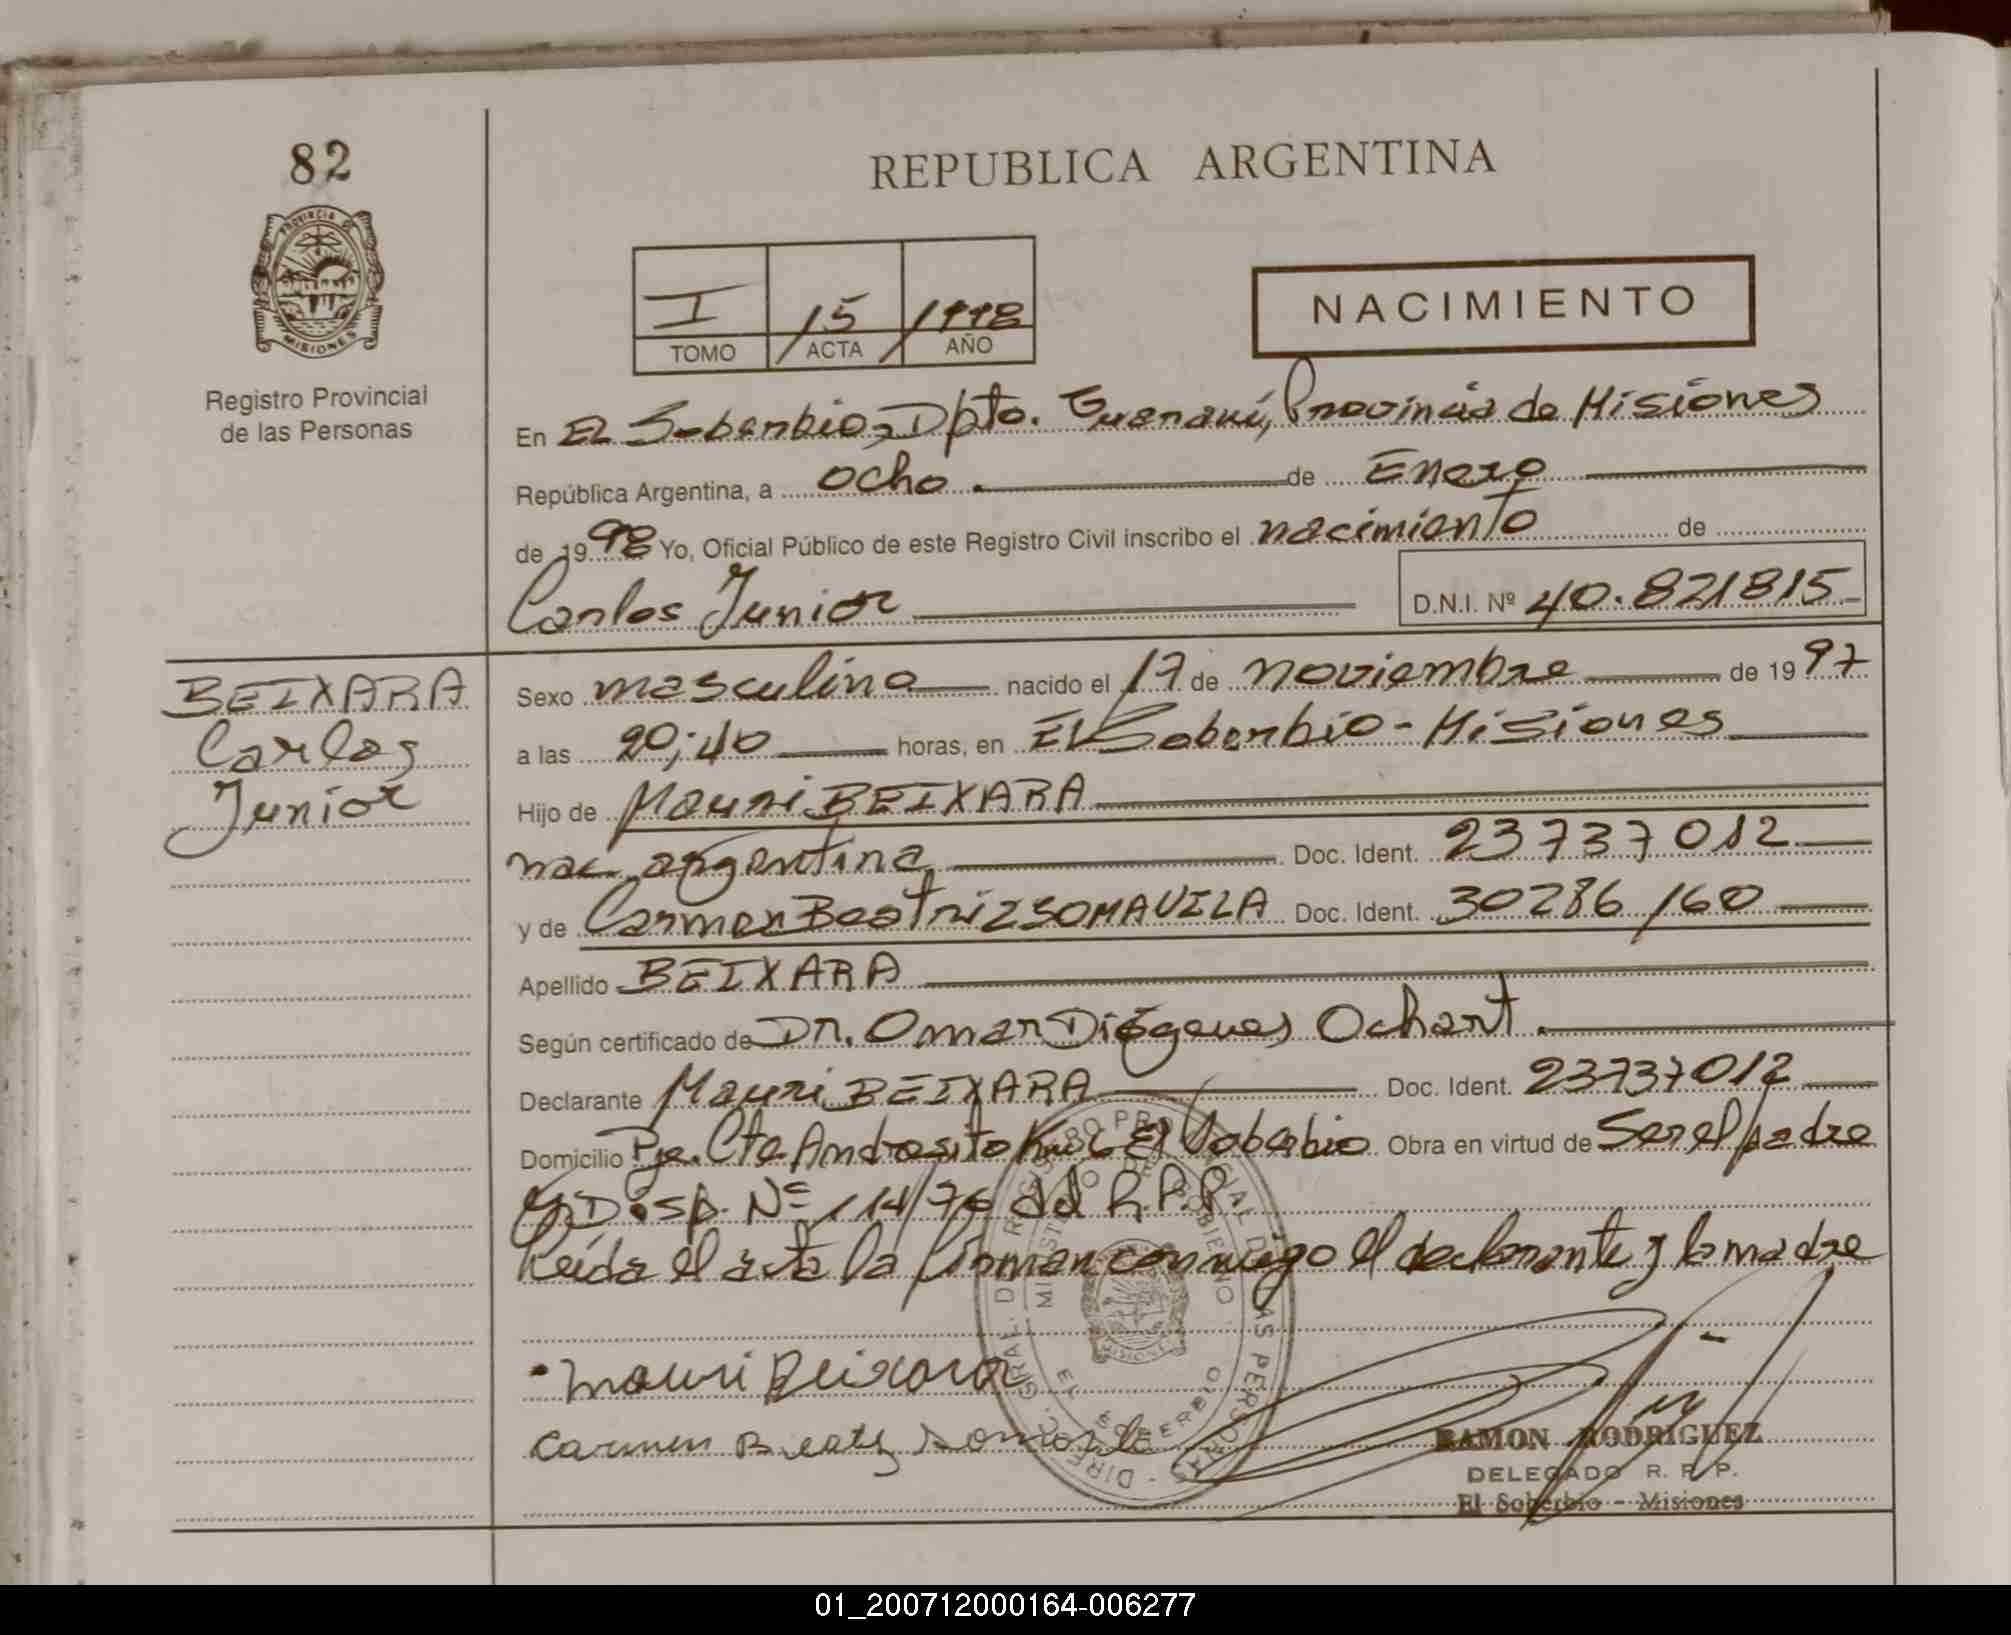 82
REPUBLICA ARGENTINA
PROVINCIA DE MISIONES
Registro Provincial
de las Personas
I 15 1998
TOMO ACTA AÑO
NACIMIENTO
En El Soberbio, Dpto. Guaraní, Provincia de Misiones
República Argentina, a ocho de Enero
de 1998 Yo, Oficial Público de este Registro Civil inscribo el nacimiento de
Carlos Junior D.N.I. Nº 40.821815
BEIXARA
Carlos
Junior
Sexo masculino nacido el 17 de noviembre de 1997
a las 20;40 horas, en El Soberbio - Misiones
Hijo de Mauri BEIXARA
nac. argentina Doc. Ident. 23737012
y de Carmen Beatriz SOMAVILA Doc. Ident. 30286160
Apellido BEIXARA
Según certificado de Dr. Omar Diógenes Ochart.
Declarante Mauri BEIXARA Doc. Ident. 23737012
Domicilio Pje. Cte Andresito El Soberbio Obra en virtud de Ser el padre
y Disp. Nº 114/76 del R.P.P.
Leída el acta la firman conmigo el declarante y la madre
Mauri Beixara
Carmen Beatriz Somavila
DIREC. GRAL. DEL REGISTRO PROVINCIAL DE LAS PERSONAS
MINISTERIO DE GOBIERNO
EL SOBERBIO
RAMON RODRIGUEZ
DELEGADO R. P. P.
El Soberbio - Misiones
01_200712000164-006277